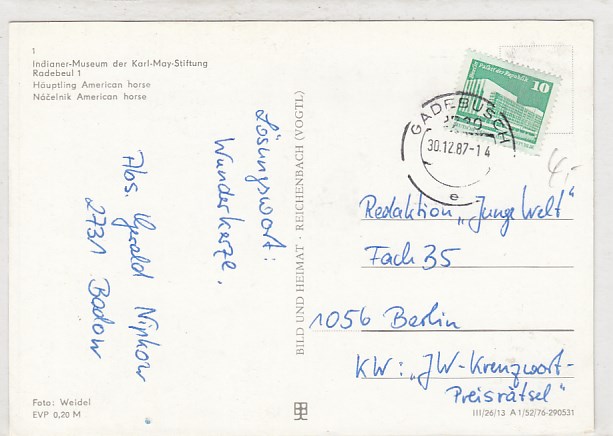 1
Indianer-Museum der Karl-May-Stiftung
Radebeul 1
Häuptling American horse
Náčelnik American horse
Lösungswort:
Wunderkerze.
Abs. Gerald Nipkow
2731 Badow
Foto: Weidel
EVP 0,20 M
BILD UND HEIMAT · REICHENBACH (VOGTL)
10
GADEBUSCH
30.12.87-14
e
4,-
Redaktion „Junge Welt"
Fach 35
1056 Berlin
KW: „JW-Kreuzwort-
Preisrätsel"
III/26/13 A 1/52/76-290531